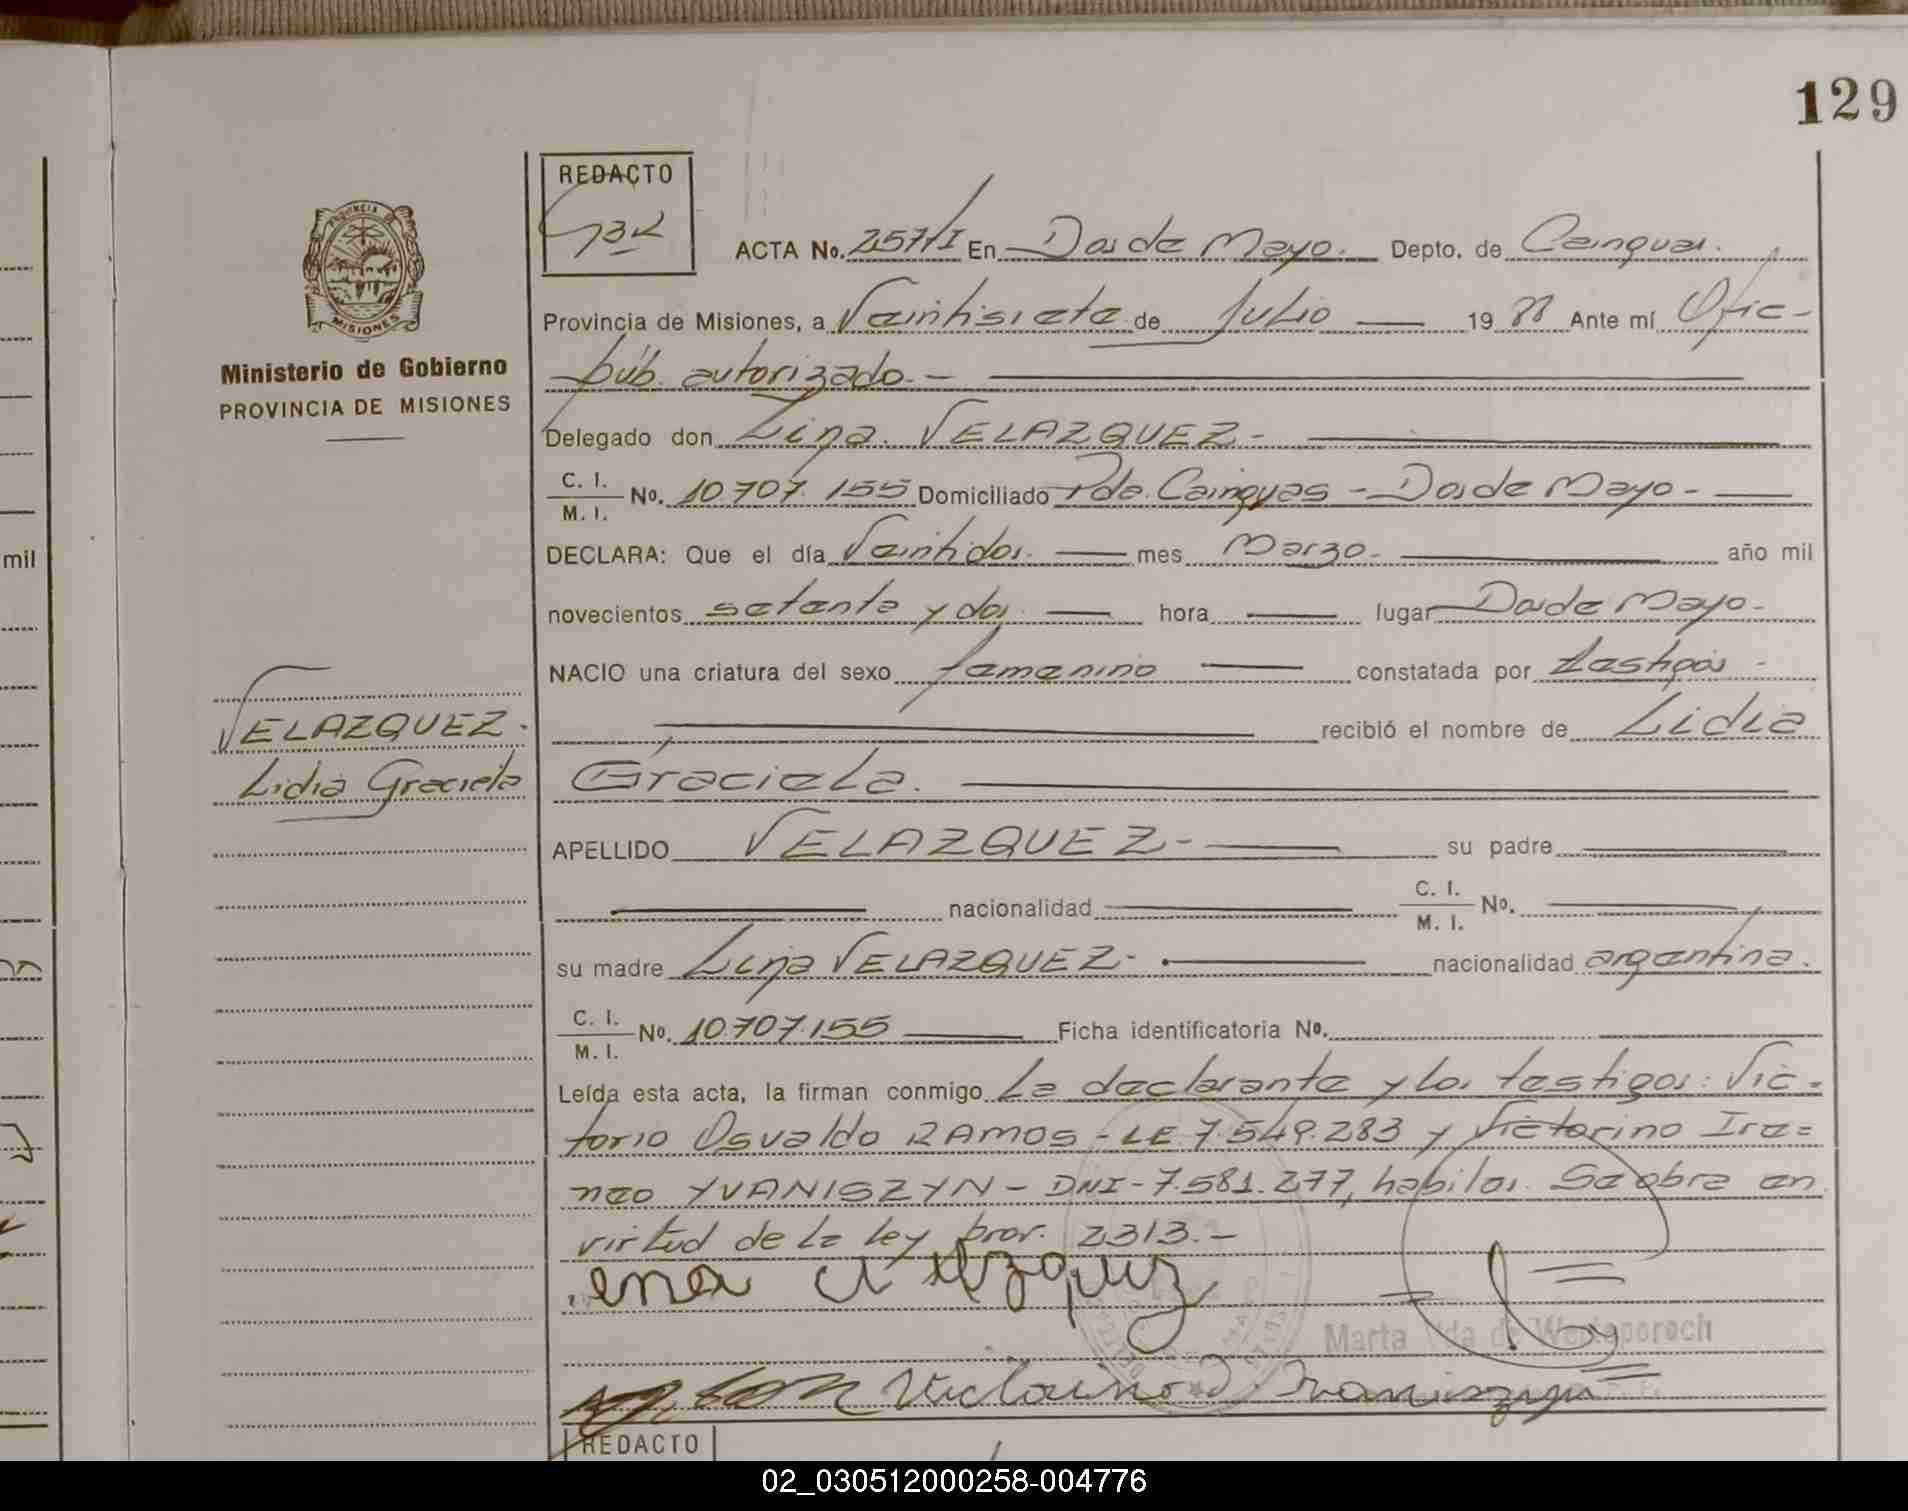 129
REDACTO
ACTA No. 257/I En Dos de Mayo. Depto. de Cainguas.
Provincia de Misiones, a Veintisiete de Julio 19 88 Ante mí Ofic-
púb. autorizado.-
Ministerio de Gobierno
PROVINCIA DE MISIONES
MISIONES
Delegado don VELAZQUEZ-
C. I.
M. I. No. 10.707.155 Domiciliado Pdo. Cainguas - Dos de Mayo -
DECLARA: Que el día Veintidos. mes Marzo- año mil
novecientos setenta y dos. hora lugar Dos de Mayo.
NACIO una criatura del sexo femenino constatada por testigos -
recibió el nombre de Lidia
Graciela.
VELAZQUEZ.
Lidia Graciela
APELLIDO VELAZQUEZ- su padre
nacionalidad C. I.
M. I. No.
su madre VELAZQUEZ- nacionalidad argentina.
C. I.
M. I. No. 10.707.155 Ficha identificatoria No.
Leída esta acta, la firman conmigo La declarante y los testigos: Vic=
torio Osvaldo RAMOS - LE 7.549.283 y Victorino Ire=
neo YVANISZYN - DNI - 7.581.277, habiles. Se obra en
virtud de la ley prov. 2313.-
Marta de
REDACTO
mil
02_030512000258-004776